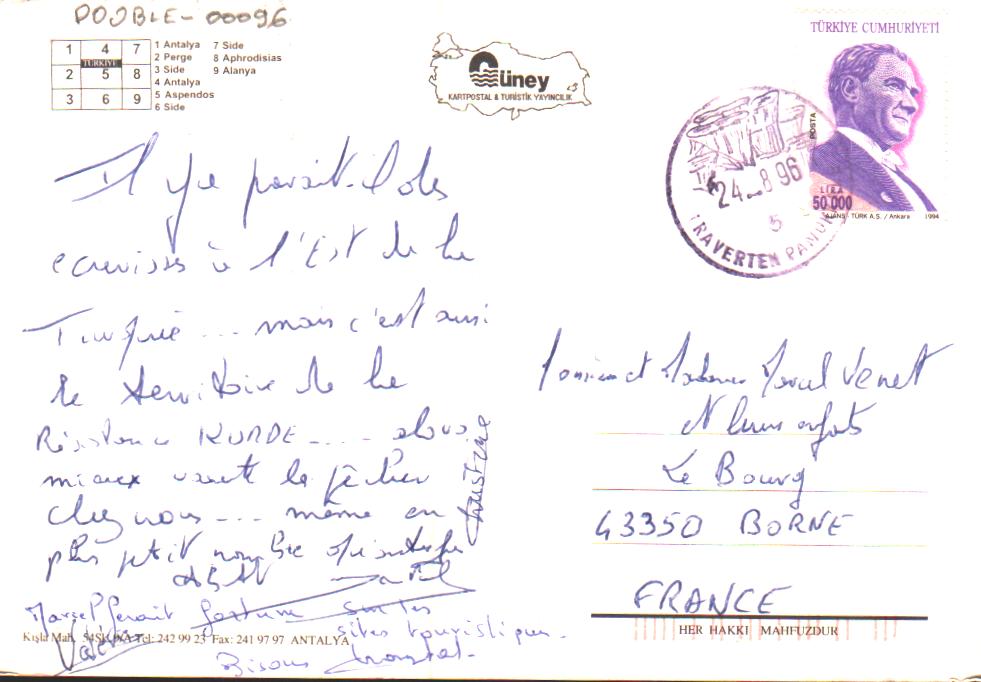 DOUBLE-00096
1 4 7
TÜRKİYE
2 5 8
3 6 9
1 Antalya 7 Side
2 Perge 8 Aphrodisias
3 Side 9 Alanya
4 Antalya
5 Aspendos
6 Side
Güney
KARTPOSTAL & TURİSTİK YAYINCILIK
TÜRKİYE CUMHURİYETİ
POSTA
LİRA
50 000
AJANS - TÜRK A.Ş. / Ankara 1994
24 -8 96
5
TRAVERTEN PAMUK
Il y a parait-il des
ecrevisses à l'Est de la
Turquie ... mais c'est aussi
le territoire de la
Résistance KURDE .... alors
mieux vaut les pêcher
chez nous ... même en
plus petit nombre qu'autrefois
Christine
Marcel ferait fortune sur les
sites touristiques.
Bisous
Valérie
Monsieur et Madame Marcel Venet
et leurs enfants
Le Bourg
43350 BORNE
FRANCE
Kışla Mah. Tel: 242 99 23 Fax: 241 97 97 ANTALYA
HER HAKKI MAHFUZDUR